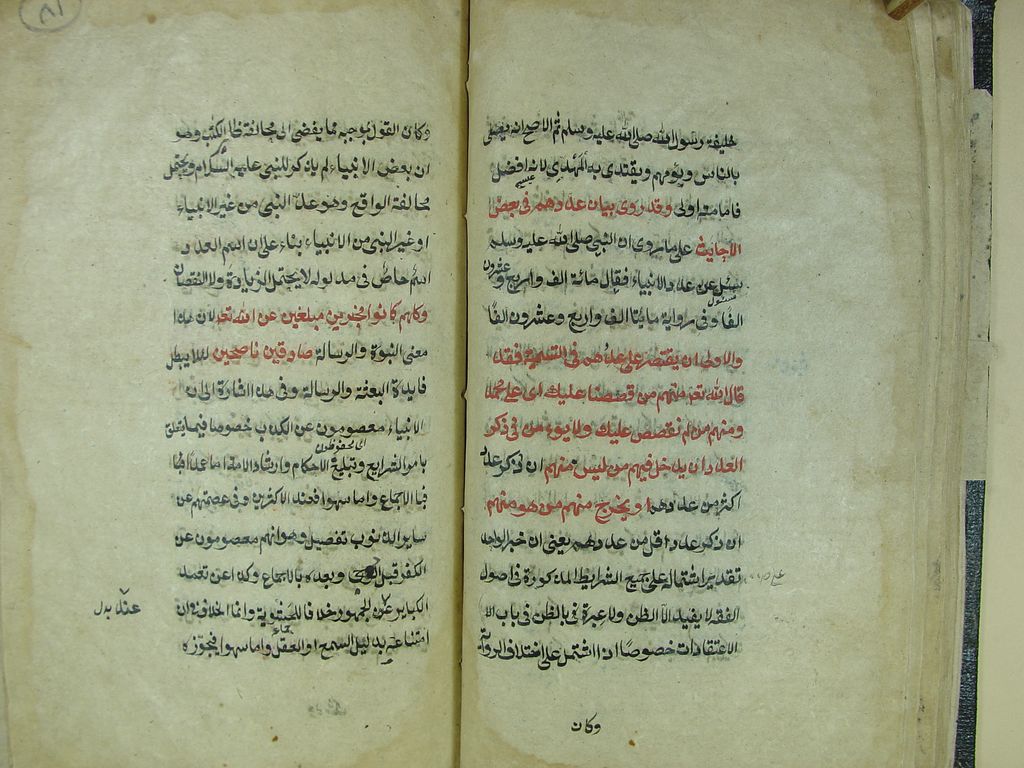 خليفة رسول الله صلى الله عليه وسلم ثم الاصح انه يصلى
بالناس ويؤمهم ويقتدى به المهدى لانه افضل
عيسى
فامامته اولى وقد روى بيان عددهم فى بعض
الأحاديث على ما روى ان النبى صلى الله عليه وسلم
سئل عن عدد الانبياء فقال مائة الف واربع وعشرون
الفا وفى رواية مايتا الف واربع وعشرون الفا
والاولى ان يقتصر على عددهم فى التسمية فقد
قال الله تعـ منهم من قصصنا عليك اى على محمد
ومنهم من لم نقصص عليك ولا يؤمن فى ذكر
العدد ان يدخل فيهم من ليس منهم ان ذكر عدد
اكثر من عددهم او يخرج منهم من هو منهم
ان ذكر عددا اقل من عددهم يعنى ان خبر الواحد
تقدير اشتماله على جميع الشرايط المذكورة فى اصول
على
الفقه لا يفيد الا الظن ولا عبرة فى بالظن فى باب الا
الاعتقادات خصوصا اذا اشتمل على اختلاف الرواية
وكان
٨١
وكان القول بموجبه مما يفضى الى مخالفة ظا الكتب وهو
ان بعض الانبياء لم يذكر للنبى عليه السلام ويحتمل
مخالفة الواقع وهو عد النبى من غير الانبياء
او غير النبى من الانبياء بناء على ان اسم العدد
اسم خاص فى مدلوله لا يحتمل الزيادة ولا النقصان
وكلهم كانوا مخبرين مبلغين عن الله تعـ لان هذا
معنى النبوة والرسالة صادقين ناصحين لئلا يبطل
فايدة البعثة والرسالة وفى هذا اشارة الى ان
الانبياء معصومون عن الكذب خصوصا فيما يتعلق
اى محفوظون
بامر الشرايع وتبليغ الاحكام وارشاد الامة اما عمدا
فبالاجماع واما سهوا فعند الاكثرين وفى عصمتهم عن
ساير الذنوب تفصيل وهو انهم معصومون عن
الكفر قبل الوحى وبعده بالاجماع وكذا عن تعمد
الكباير عند الجمهور خلافا للحشوية وانما الخلاف فى ان
عند بدل
امتناعه بدليل السمع او العقل واما سهوا فجوزه